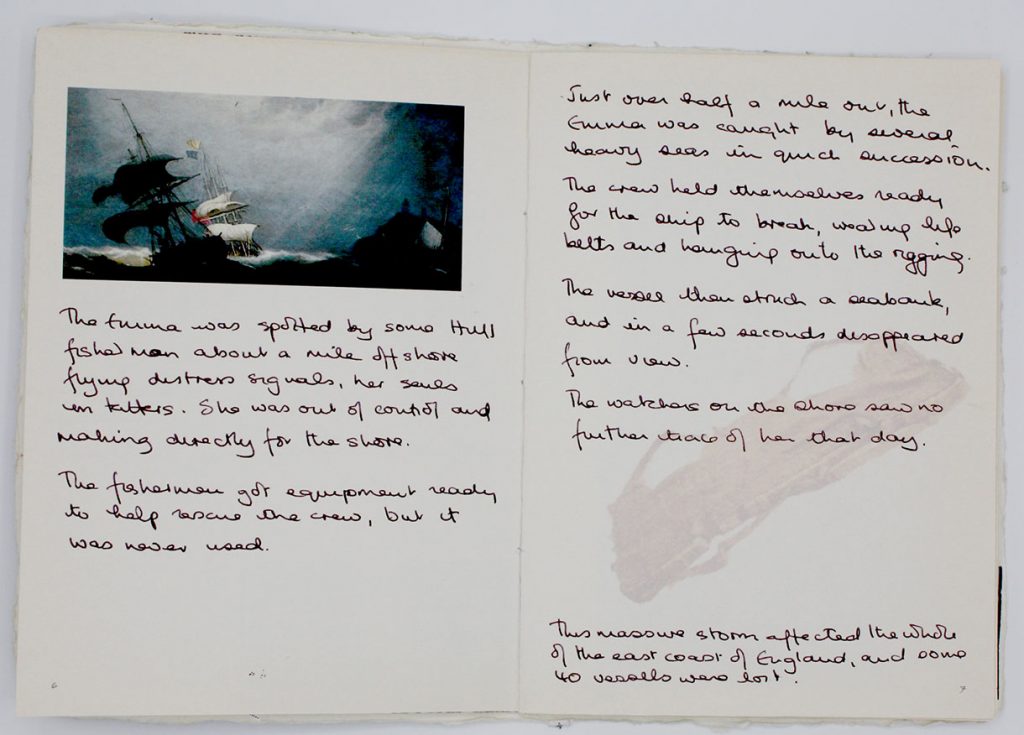 The Emma was spotted by some Hull
fishermen about a mile off shore
flying distress signals, her sails
in tatters. She was out of control and
making directly for the shore.
The fishermen got equipment ready
to help rescue the crew, but it
was never used.
6
Just over half a mile out, the
Emma was caught by several
heavy seas in quick succession.
The crew held themselves ready
for the ship to break, wearing life
belts and hanging onto the rigging.
The vessel then struck a seabank,
and in a few seconds disappeared
from view.
The watchers on the shore saw no
further trace of her that day.
This massive storm affected the whole
of the east coast of England, and some
40 vessels were lost.
7